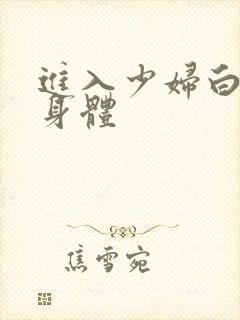 進入少婦白
身體
焦雪宛